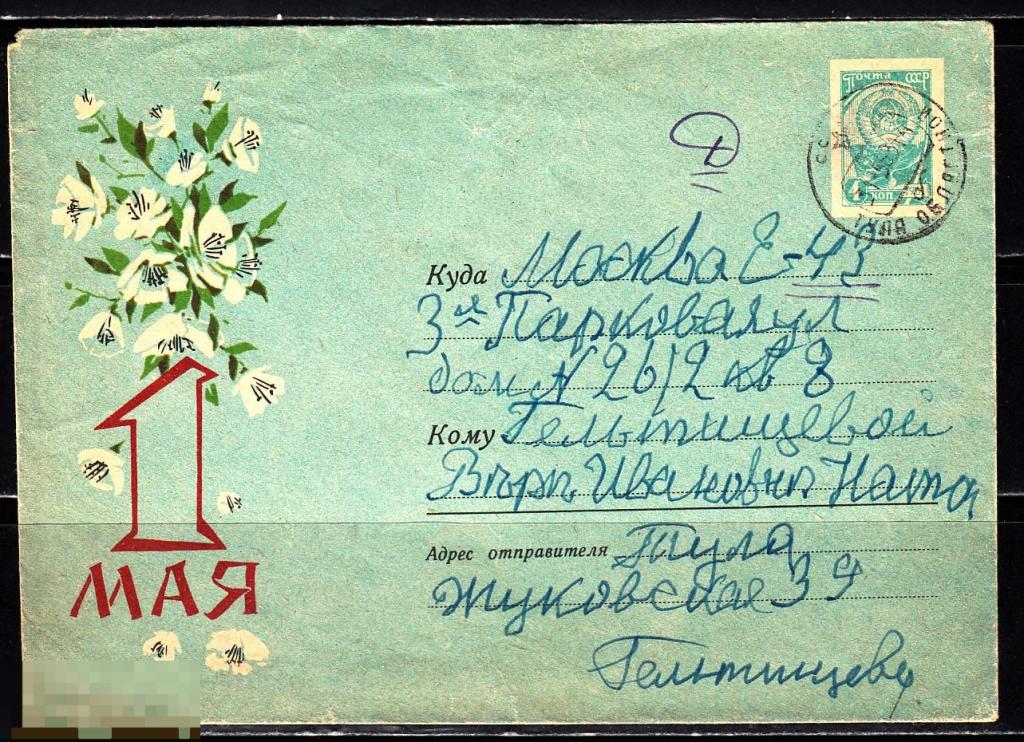 Почта СССР
4 коп
Куда Москва Е-43
3ья Парковая ул
дом N 26/2 кв 8
Кому Гельтищевой
Вѣрѣ Ивановнѣ Ната
Адрес отправителя Тула
Жуковская 39
Гельтищева
1
МАЯ